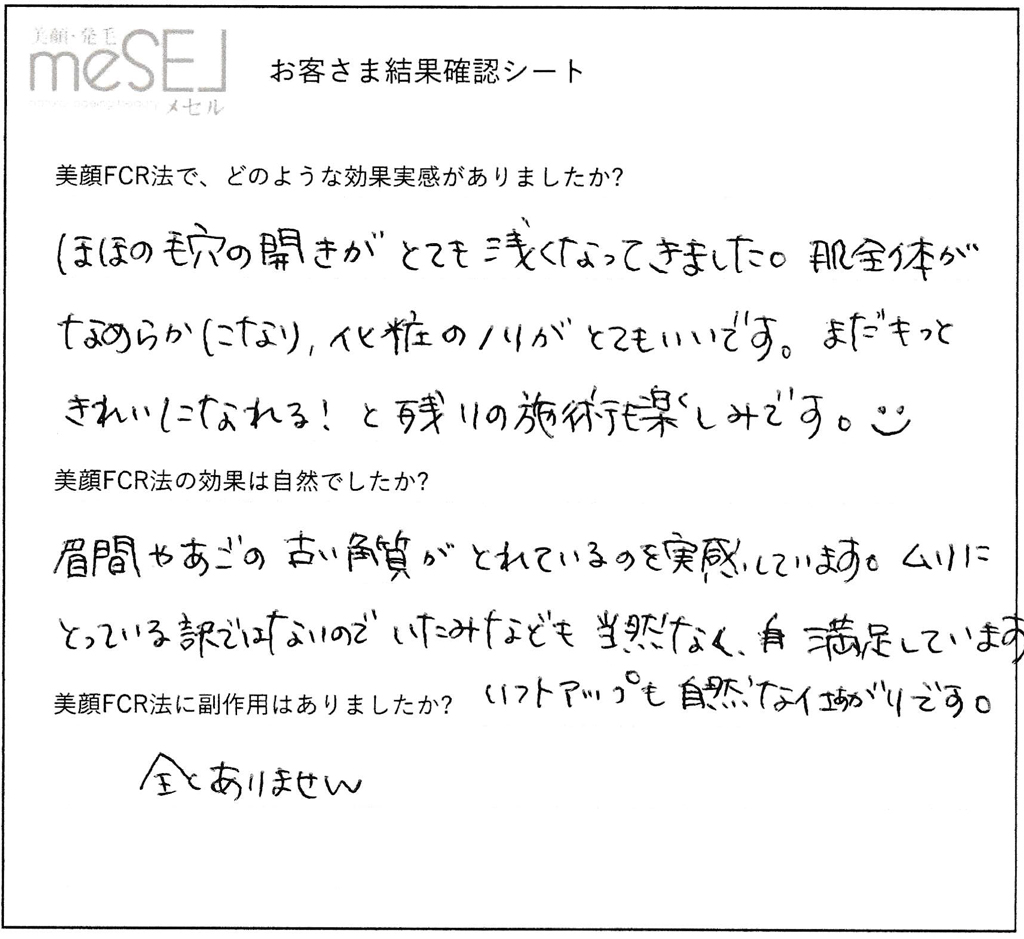 美顔・発毛
meSEL
メセル
お客さま結果確認シート
美顔FCR法で、どのような効果実感がありましたか?
ほほの毛穴の開きがとても浅くなってきました。肌全体が
なめらかになり、化粧のノリがとてもいいです。まだもっと
きれいになれる!と残りの施術も楽しみです。
美顔FCR法の効果は自然でしたか?
眉間やあごの古い角質がとれているのを実感しています。ムリに
とっている訳ではないのでいたみなども当然なく、満足しています
リフトアップも自然な仕あがりです。
美顔FCR法に副作用はありましたか?
全くありません